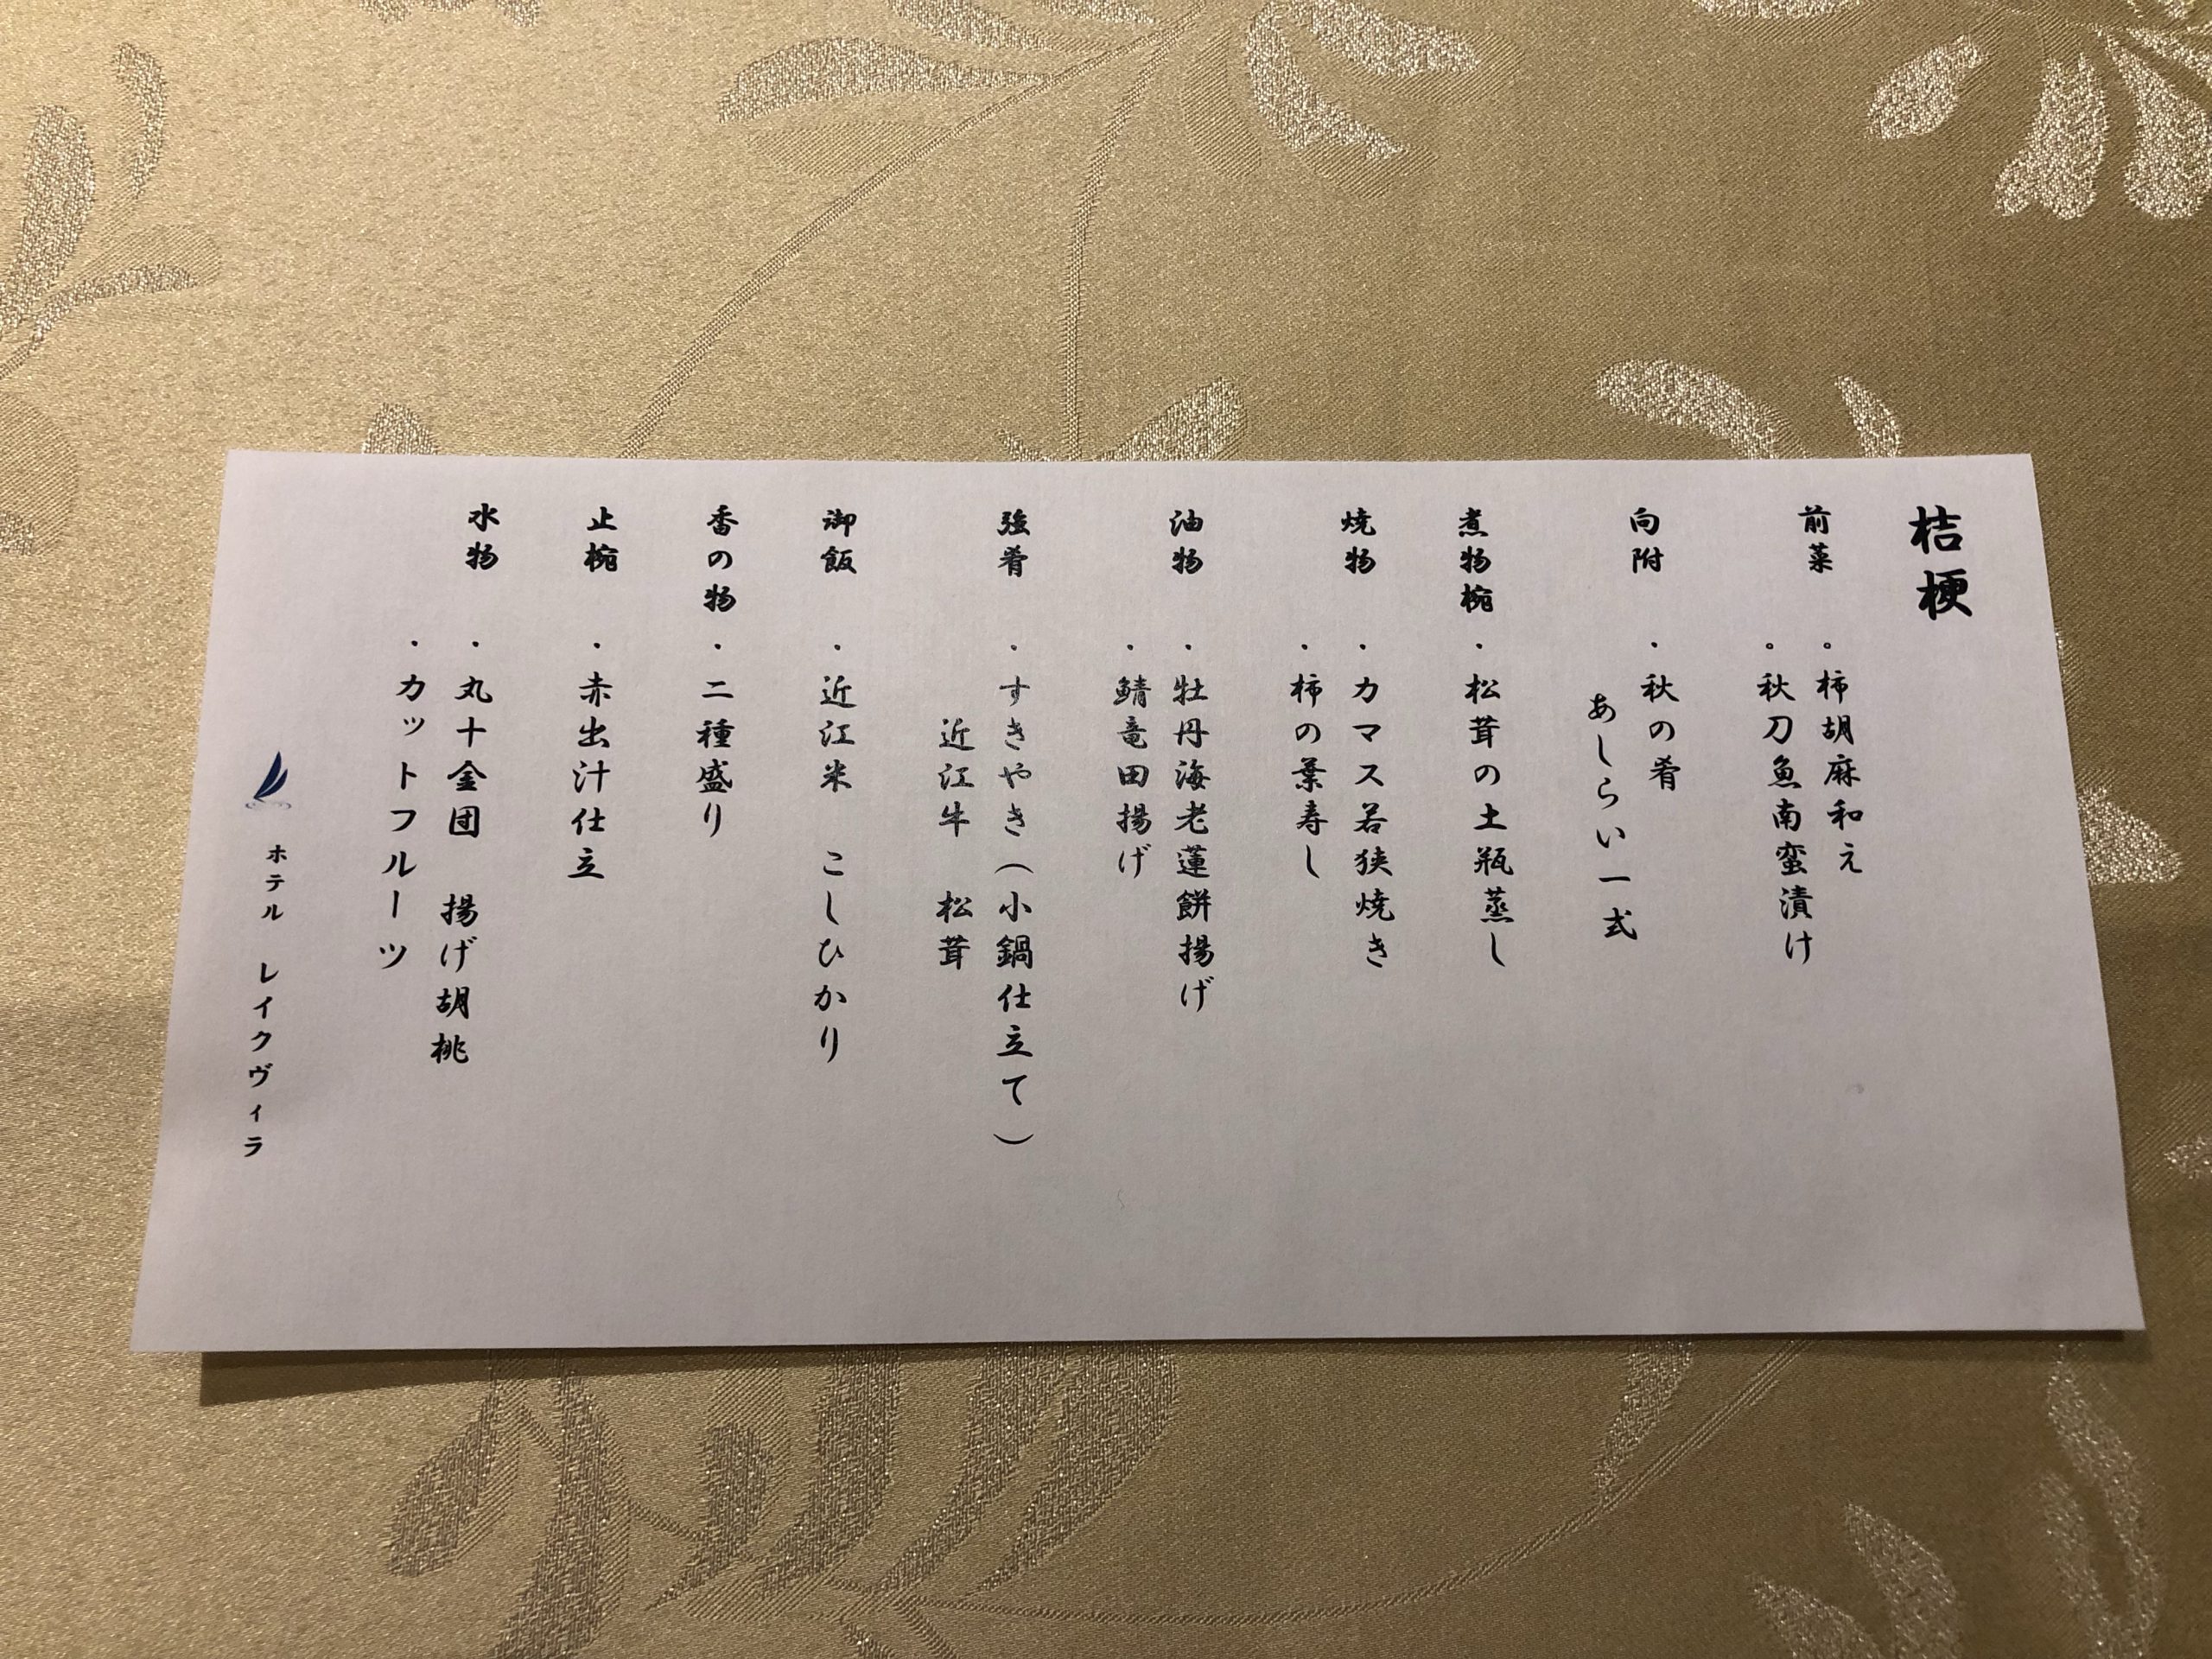 桔梗
前菜 。柿胡麻和え
。秋刀魚南蛮漬け
向附 ・秋の肴
あしらい一式
煮物椀 ・松茸の土瓶蒸し
焼物 ・カマス若狭焼き
・柿の葉寿し
油物 ・牡丹海老蓮餅揚げ
・鯖竜田揚げ
強肴 ・すきやき（小鍋仕立て）
近江牛 松茸
御飯 ・近江米 こしひかり
香の物 ・二種盛り
止椀 ・赤出汁仕立
水物 ・丸十金団 揚げ胡桃
・カットフルーツ
ホテル レイクヴィラ